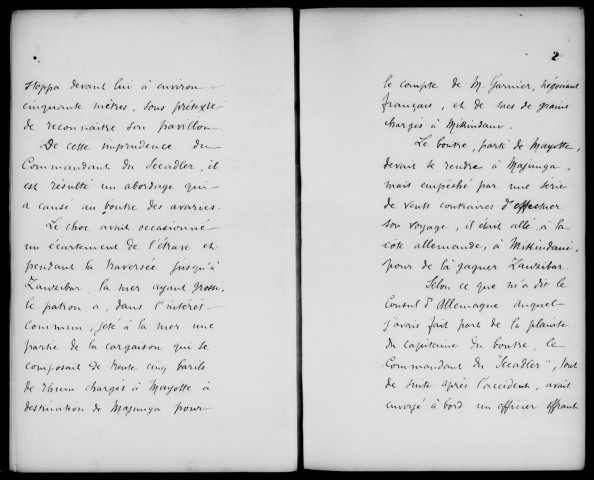 stoppa devant lui à environ
cinquante mètres, sous prétexte
de reconnaître son pavillon
De cette imprudence du
Commandant du Seeadler, il
est résulté un abordage qui
a causé au boutre des avaries.
Le choc avait occasionné
un écartement de l'étrave et
pendant la traversée jusqu'à
Zanzibar, la mer ayant grossi,
le patron a, dans l'intérêt
commun, jeté à la mer une
partie de la cargaison qui se
composait de trente cinq barils
de rhum chargés à Mayotte à
destination de Majunga pour
2
le compte de M. Garnier, négociant
français, et de sacs de grains
chargés à Mikindani.
Le boutre, parti de Mayotte,
devait se rendre à Majunga,
mais empêché par une série
de vents contraires d'effectuer
son voyage, il était allé à la
côte allemande, à Mikindani,
pour de là gagner Zanzibar.
Selon ce que m'a dit le
Consul d'Allemagne auquel
j'avais fait part de la plainte
du capitaine du boutre, le
Commandant du "Seeadler", tout
de suite après l'accident, avait
envoyé à bord un officier offrant